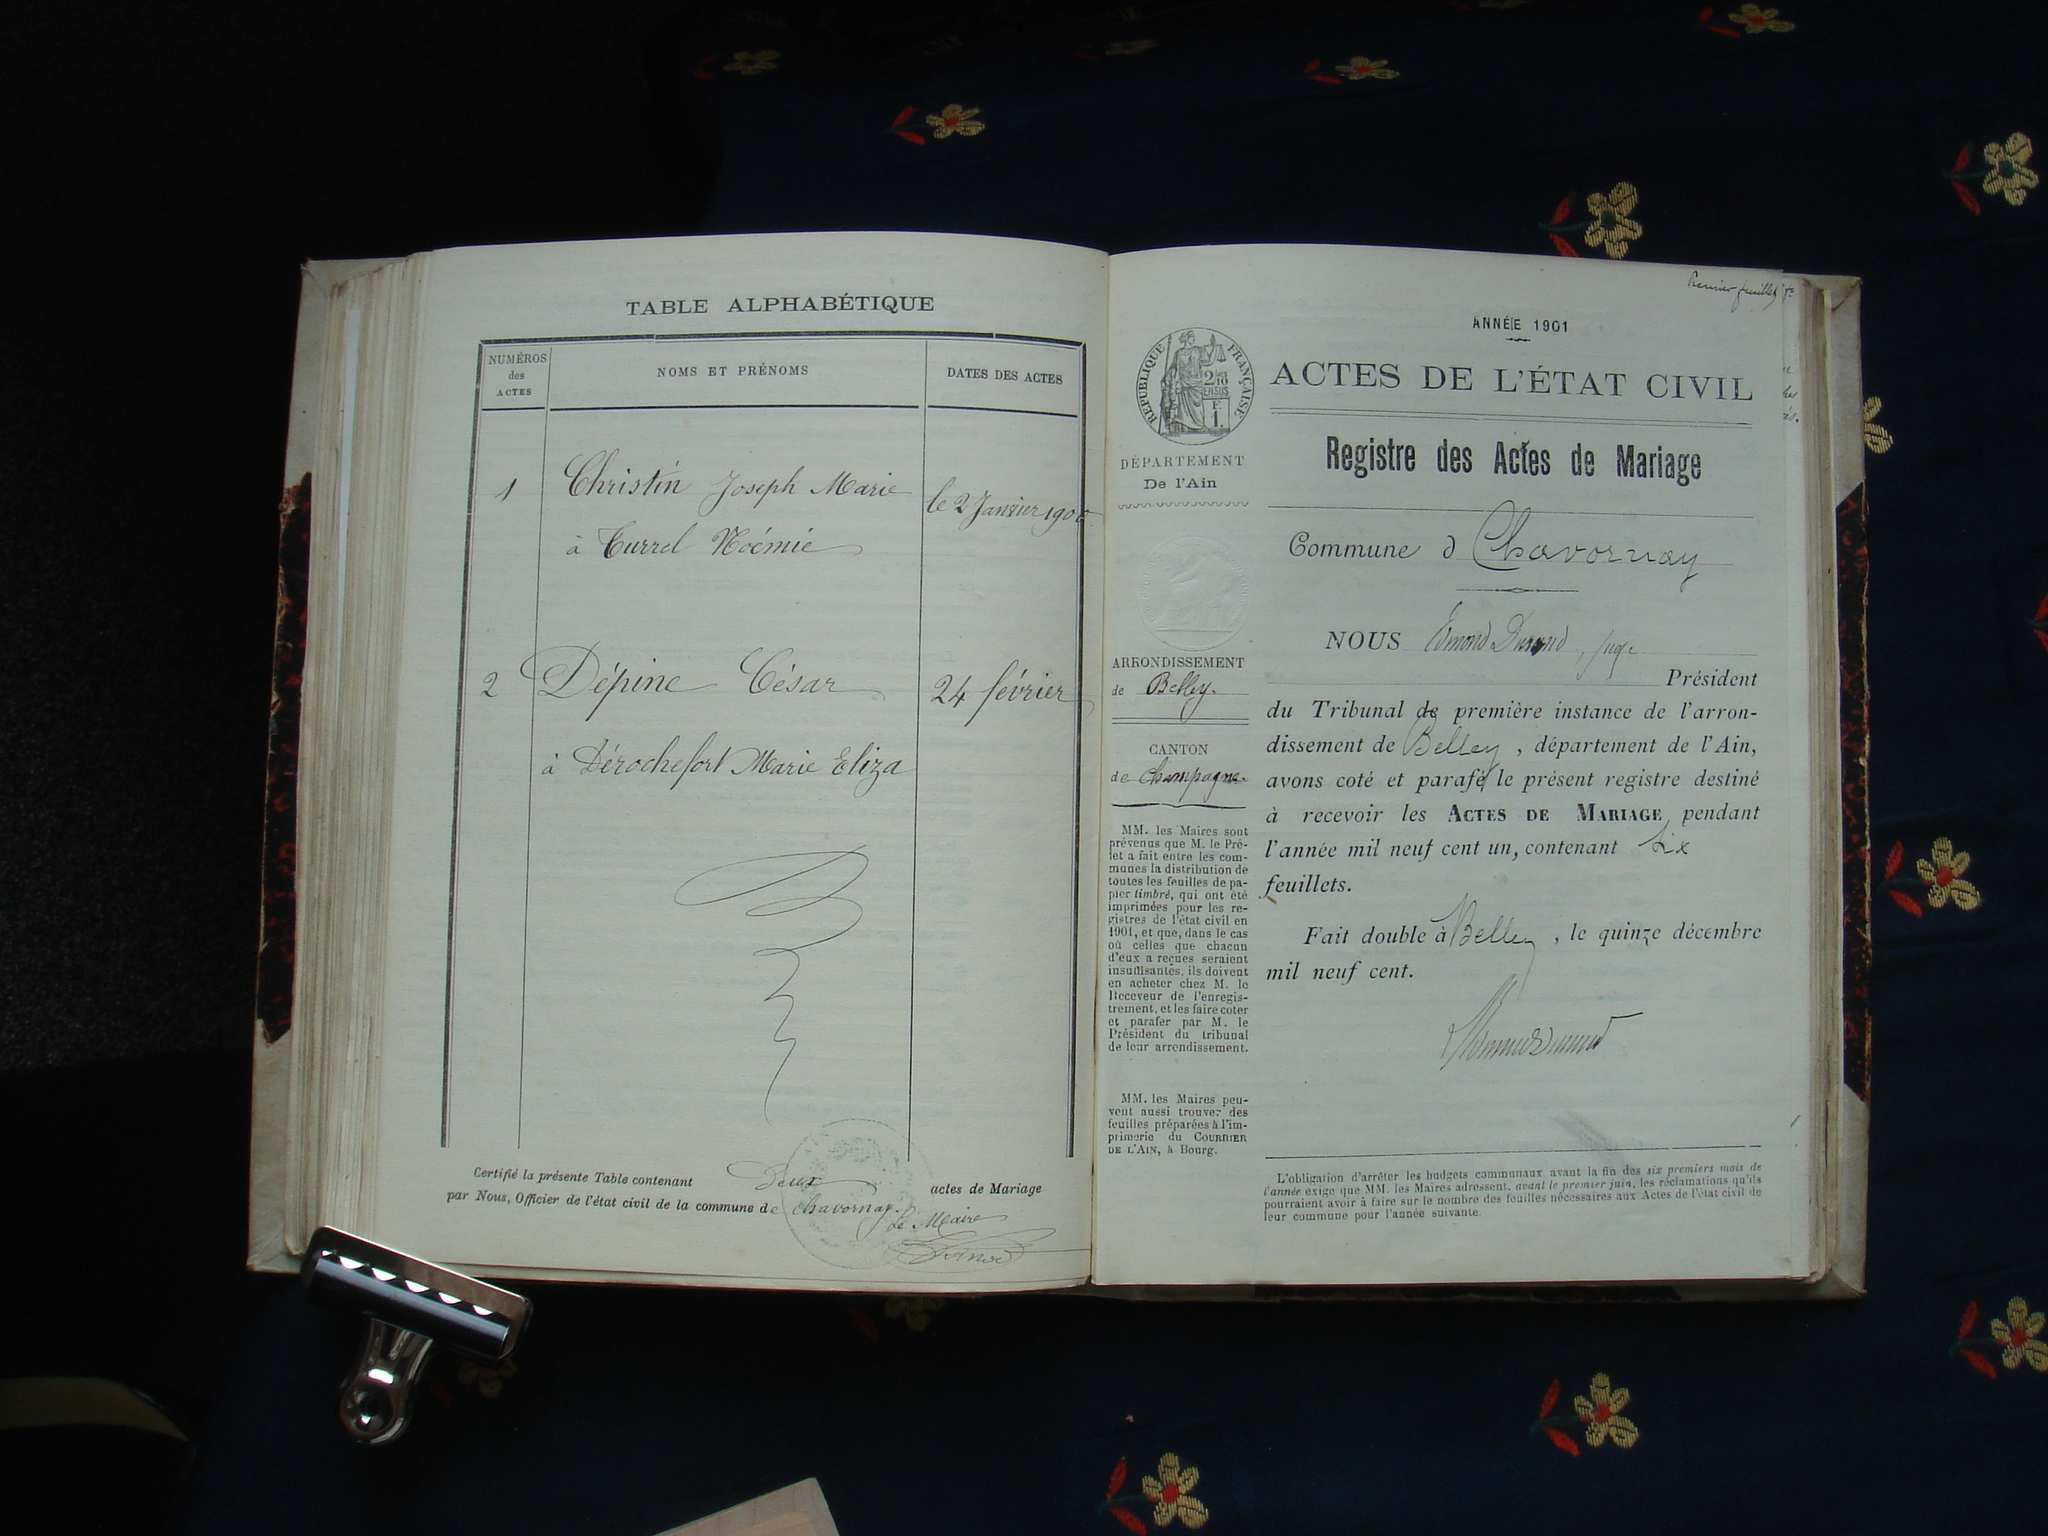 TABLE ALPHABÉTIQUE
NUMÉROS
des
ACTES
NOMS ET PRÉNOMS
DATES DES ACTES
1
Christin Joseph Marie
le 2 Janvier 1900
à Turrel Noémie
2
Dépine César
24 février
à Dérochefort Marie Eliza
Certifié la présente Table contenant Deux actes de Mariage
par Nous, Officier de l'état civil de la commune de Chavornay.
Le Maire
Premier feuillet
ANNÉE 1901
RÉPUBLIQUE FRANÇAISE
ACTES DE L'ÉTAT CIVIL
Registre des Actes de Mariage
DÉPARTEMENT
De l'Ain
Commune d Chavornay
NOUS Edmond Durand, juge
Président
du Tribunal de première instance de l'arron-
dissement de Belley, département de l'Ain,
avons coté et parafé le présent registre destiné
à recevoir les ACTES DE MARIAGE pendant
l'année mil neuf cent un, contenant Six
feuillets.
Fait double à Belley, le quinze décembre
mil neuf cent.
ARRONDISSEMENT
de Belley.
CANTON
de Champagne
MM. les Maires sont
prévenus que M. le Pré-
fet a fait entre les com-
munes la distribution de
toutes les feuilles de pa-
pier timbré, qui ont été
imprimées pour les re-
gistres de l'état civil en
1901, et que, dans le cas
où celles que chacun
d'eux a reçues seraient
insuffisantes, ils doivent
en acheter chez M. le
Receveur de l'enregis-
trement, et les faire coter
et parafer par M. le
Président du tribunal
de leur arrondissement.
MM. les Maires peu-
vent aussi trouver des
feuilles préparées à l'im-
primerie du COURRIER
DE L'AIN, à Bourg.
L'obligation d'arrêter les budgets communaux avant la fin des six premiers mois de
l'année exige que MM. les Maires adressent, avant le premier juin, les réclamations qu'ils
pourraient avoir à faire sur le nombre des feuilles nécessaires aux Actes de l'état civil de
leur commune pour l'année suivante.